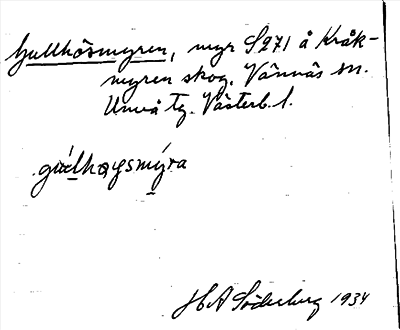 Gullhösmyren, myr S271 å Kråk-
myren skog. Vännäs sn.
Umeå tg. Västerb. l.
gúlhøysmýra
H A Söderberg 1934